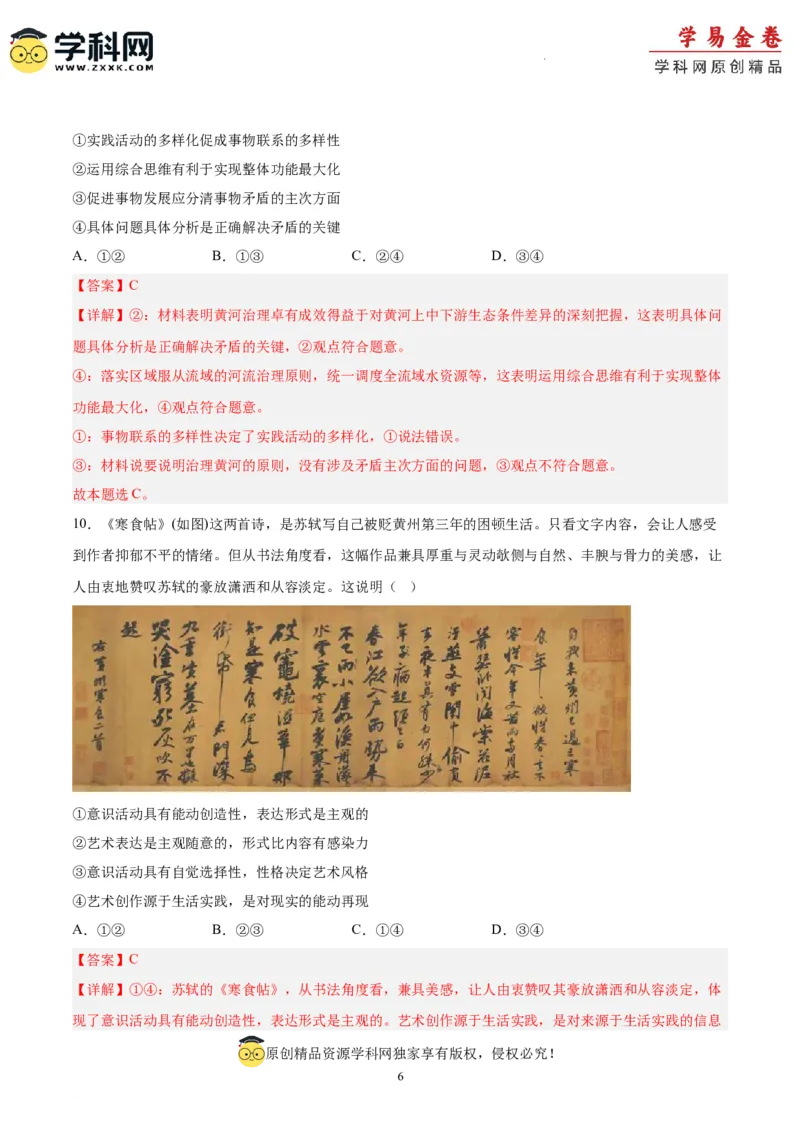 学科网
WWW.ZXXK.COM
学易金卷
学科网原创精品
①实践活动的多样化促成事物联系的多样性
②运用综合思维有利于实现整体功能最大化
③促进事物发展应分清事物矛盾的主次方面
④具体问题具体分析是正确解决矛盾的关键
A．①② B．①③ C．②④ D．③④
【答案】C
【详解】②：材料表明黄河治理卓有成效得益于对黄河上中下游生态条件差异的深刻把握，这表明具体问
题具体分析是正确解决矛盾的关键，②观点符合题意。
④：落实区域服从流域的河流治理原则，统一调度全流域水资源等，这表明运用综合思维有利于实现整体
功能最大化，④观点符合题意。
①：事物联系的多样性决定了实践活动的多样化，①说法错误。
③：材料说要说明治理黄河的原则，没有涉及矛盾主次方面的问题，③观点不符合题意。
故本题选C。
10．《寒食帖》(如图)这两首诗，是苏轼写自己被贬黄州第三年的困顿生活。只看文字内容，会让人感受
到作者抑郁不平的情绪。但从书法角度看，这幅作品兼具厚重与灵动欹侧与自然、丰腴与骨力的美感，让
人由衷地赞叹苏轼的豪放潇洒和从容淡定。这说明（ ）
自我来黄州已过三寒
食年年欲惜春春去不
容惜今年又苦雨两月秋
萧瑟卧闻海棠花泥
污燕支雪闇中偷负
去夜半真有力何殊少
年子病起须已白
春江欲入户雨势来
不已雨小屋如渔舟濛濛
水云里空庖煮寒菜
破灶烧湿苇那
知是寒食但见乌
衔帋君门深
九重坟墓在万里也拟
哭塗穷死灰吹不
起
右黄州寒食二首
①意识活动具有能动创造性，表达形式是主观的
②艺术表达是主观随意的，形式比内容有感染力
③意识活动具有自觉选择性，性格决定艺术风格
④艺术创作源于生活实践，是对现实的能动再现
A．①② B．②③ C．①④ D．③④
【答案】C
【详解】①④：苏轼的《寒食帖》，从书法角度看，兼具美感，让人由衷赞叹其豪放潇洒和从容淡定，体
现了意识活动具有能动创造性，表达形式是主观的。艺术创作源于生活实践，是对来源于生活实践的信息
原创精品资源学科网独家享有版权，侵权必究！
6